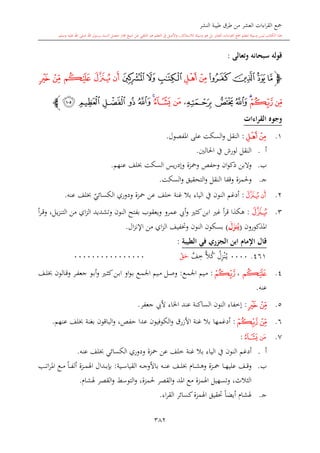 جمع القراءات العشر من طرق طيبة النشر
قوله سبحانه وتعالى :
﴿ مَّا يَوَدُّ ٱلَّذِينَ كَفَرُوا۟ مِنْ أَهْلِ ٱلْكِتَٰبِ وَلَا ٱلْمُشْرِكِينَ أَن يُنَزَّلَ عَلَيْكُم مِّنْ خَيْرٍ
مِّن رَّبِّكُمْ وَٱللَّهُ يَخْتَصُّ بِرَحْمَتِهِۦ مَن يَشَآءُ وَٱللَّهُ ذُو ٱلْفَضْلِ ٱلْعَظِيمِ ١٠٥ ﴾
وجوه القراءات
١. مِنْ أَهْلِ : النقل والسكت على المفصول.
أ . النقل لورش في الحالين.
ب. ولابن ذكوان وحفص وحمزة وإدريس السكت بخلف عنهم.
جـ. ولحمزة وقفا النقل والتحقيق والسكت.
٢. أَن يُنَزَّلَ : أدغم النون في الياء بلا غنة خلف عن حمزة ودوري الكسائي بخلف عنه.
٣. يُنَزَّلَ : هكذا قرأ غير ابن كثير وأبي عمرو ويعقوب بفتح النون وتشديد الزاي من التنزيل، وقرأ
المذكورون (يُنزَلَ) بسكون النون وتخفيف الزاي من الإنزال.
قال الإمام ابن الجزري في الطيبة :
٤٦١. ٠٠٠٠ يُنْزِلُ كُلاًّ خِفَّ حَقّ ٠٠٠٠٠٠٠٠٠٠٠٠٠٠٠٠
٤. عَلَيْكُم ، رَّبِّكُمْ : ميم الجمع: وصل ميم الجمع بواو ابن كثير وأبو جعفر وقالون بخلف
عنه.
٥. مِّنْ خَيْرٍ : إخفاء النون الساكنة عند الخاء لأبي جعفر.
٦. مِّن رَّبِّكُمْ : أدغمها بلا غنة الأزرق والكوفيون عدا حفص، والباقون بغنة بخلف عنهم.
٧. مَن يَشَآءُ :
أ . أدغم النون في الياء بلا غنة خلف عن حمزة ودوري الكسائي بخلف عنه.
ب. وقف عليهما حمزة وهشام بخلف عنه بالأوجه القياسية: بإبدال الهمزة ألفاً مع المراتب
الثلاث، وتسهيل الهمزة مع المد والقصر لحمزة، والتوسط والقصر لهشام.
جـ. لهشام أيضاً تحقيق الهمزة كسائر القراء.
٣٨٢